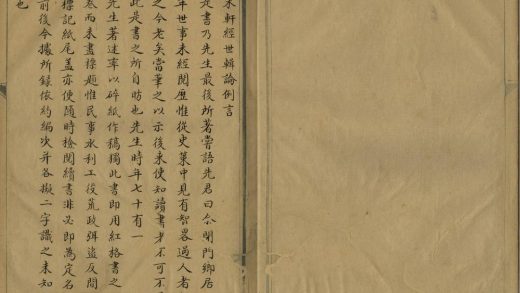 末軒經世輯論例言
是書乃先生最後所著嘗語先君曰余閉門鄉居
年世事未經閱歷惟從史策中見有智畧過人者
之今老矣當筆之以示後來使知讀書者不可不
此是書之所自昉也先生時年七十有一
先生著述率以碎紙作稿獨此書即用紅格書之
叅而未盡標題惟民事水利工役荒政弭盜反間
標記紙尾盖亦便隨時檢閱續書非必即為定名
前後今據所錄依約編次并各擬二字識之未知
也